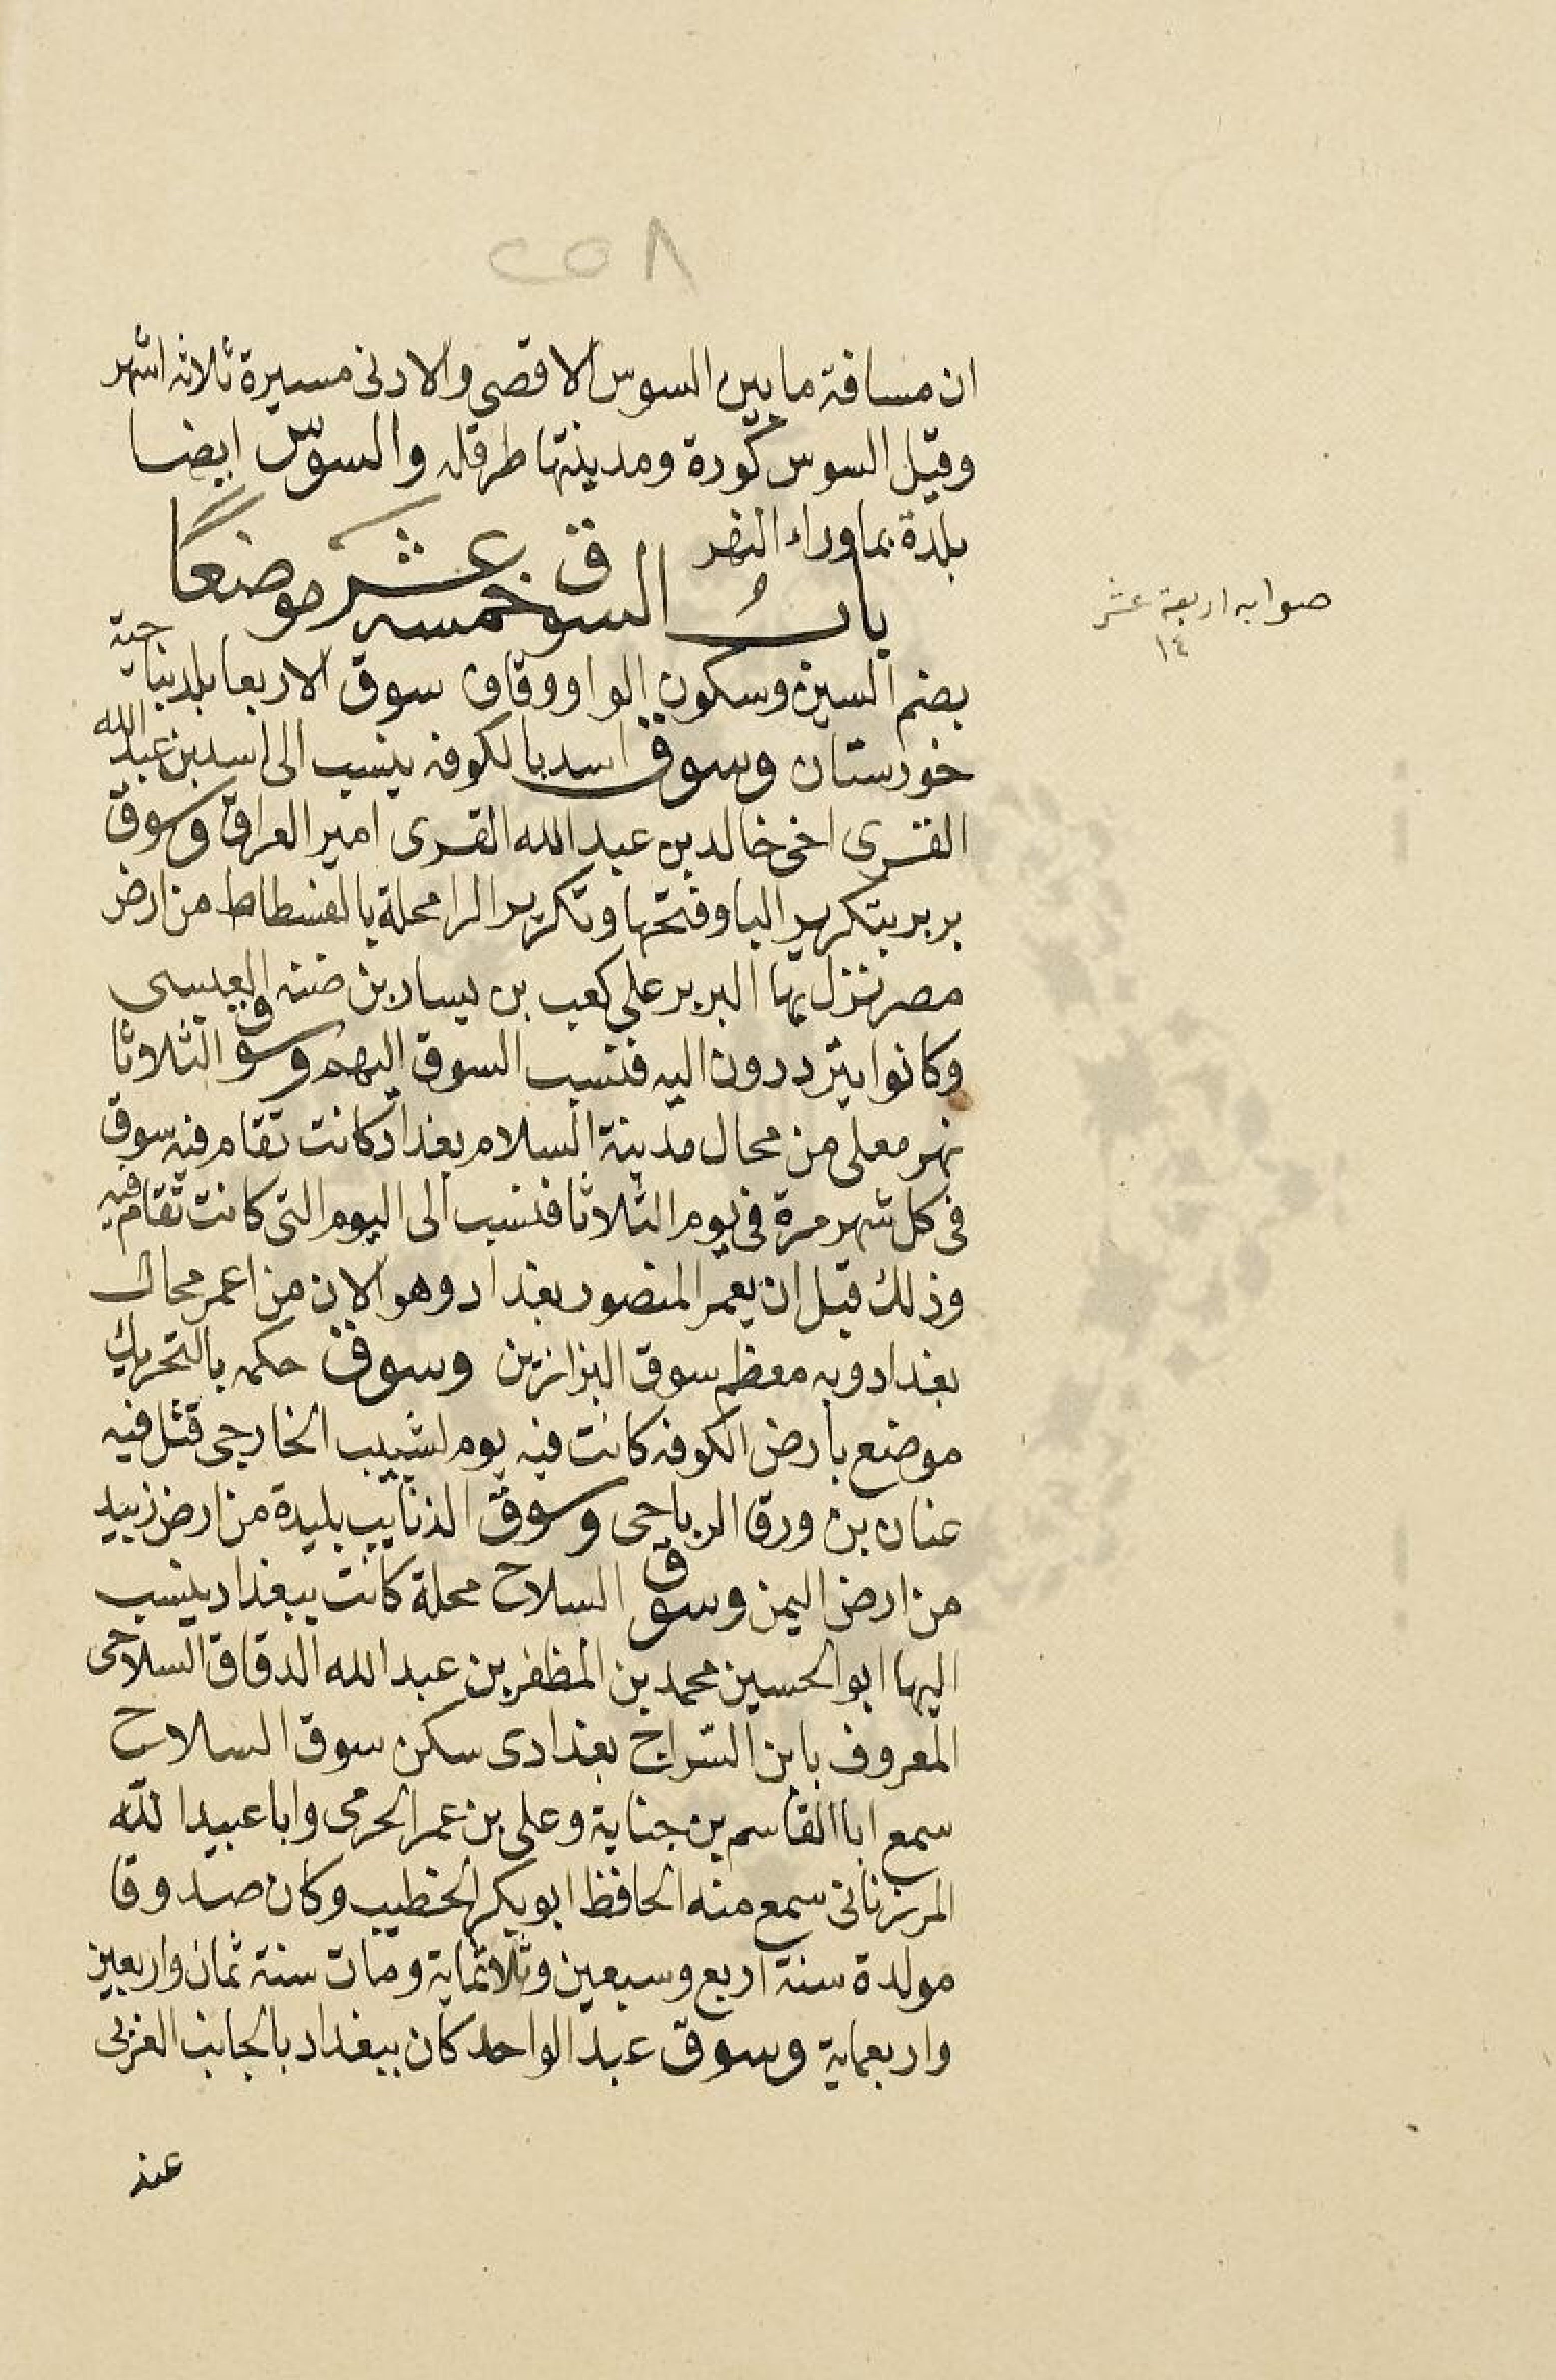 ٢٥٨
ان مسافة ما بين السوس الاقصى والادنى مسيرة ثلاثه اشهر
وقيل السوس كورة ومدينتها طرقله والسوس ايضا
بلدة بما وراء النهر
باب السوق خمسه عشر موضعًا
صوابه اربعة عشر
١٤
بضم السين وسكون الواو وقاف سوق الاربعا بلد بناحية
خورستان وسوق اسد بالكوفه ينسب الى اسد بن عبد الله
القسرى اخى خالد بن عبد الله القسرى امير العراق وسوق
بربر بتكرير البا وفتحها وتكرير الرا محلة بالفسطاط من ارض
مصر نزل بها البربر على كعب بن يسار بن ضنه العبسى
وكانوا يترددون اليه فنسب السوق اليهم وسوق الثلاثا
نهر معلى من محال مدينة السلام بغداد كانت تقام فيه سوق
فى كل شهر مرة فى يوم الثلاثا فنسب الى اليوم التى كانت تقام فيه
وذلك قبل ان يعمر المنصور بغداد وهو الان من اعمر محال
بغداد وبه معظم سوق البزازين وسوق حكمه بالتحريك
موضع بارض الكوفه كانت فيه يوم لشبيب الخارجى قتل فيه
عتاب بن ورقا الرياحى وسوق الذنايب بليدة من ارض زبيد
من ارض اليمن وسوق السلاح محلة كانت ببغداد ينسب
اليها ابو الحسين محمد بن المظفر بن عبد الله الدقاق السلاحى
المعروف بابن السّراج بغدادى سكن سوق السلاح
سمع ابا القاسم بن جنابة وعلى بن عمر الحرمى وابا عبيد الله
المرزنانى سمع منه الحافظ ابو بكر الخطيب وكان صدوقا
مولدة سنة اربع وسبعين وثلاثماية ومات سنة ثمان واربعين
واربعماية وسوق عبد الواحد كان ببغداد بالجانب الغربى
عند